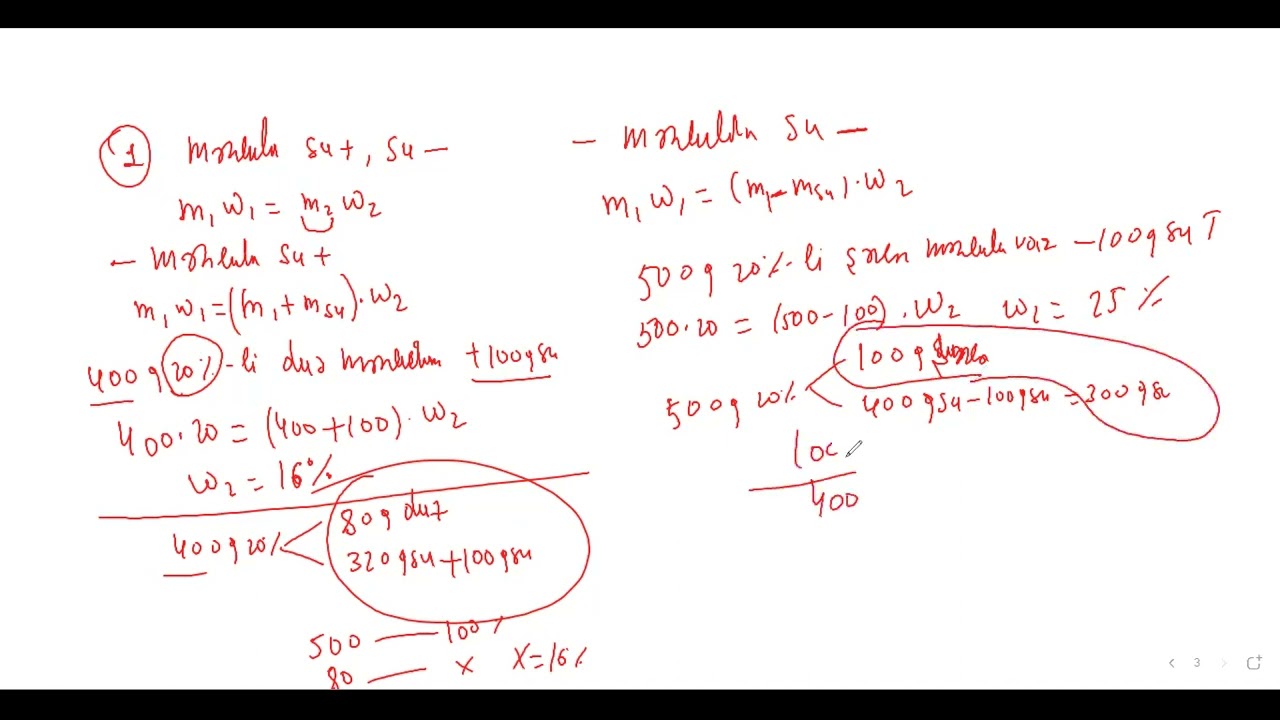 1 məhlula su+, su-
m₁w₁ = m₂w₂
- məhlula su+
m₁w₁ = (m₁ + msu)·w₂
400g 20%-li duz məhlulunu +100gsu
400·20 = (400+100)·w₂
w₂ = 16%
400g 20%
80g duz
320gsu+100gsu
500 — 100%
80 — x x=16%
- məhluldan su -
m₁w₁ = (m₁-msu)·w₂
500g 20%-li şəkər məhlulu var -100gsu
500·20 = (500-100).w₂ w₂ = 25%
500g 20%
100g
400gsu-100gsu = 300gsu
100
400
3